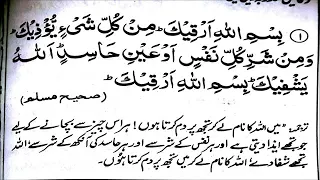 ① بِسْمِ اللّٰهِ اَرْقِيْكَ ؕ مِنْ كُلِّ شَيْءٍ يُّؤْذِيْكَ ؕ
وَمِنْ شَرِّ كُلِّ نَفْسٍ اَوْعَيْنِ حَاسِدٍ اَللّٰهُ
يَشْفِيْكَ ؕ بِسْمِ اللّٰهِ اَرْقِيْكَ ؕ
(صحیح مسلم)
ترجمہ: "میں اللہ کا نام لے کر تجھ پر دم کرتا ہوں! ہر اس چیز سے بچانے کے لیے
جو تجھے ایذا دیتی ہے اور ہر نفس کے شر سے اور ہر حاسد کی آنکھ کے شر سے اللہ
تجھے شفا دے! اللہ کا نام لے کر میں تجھ پر دم کرتا ہوں۔"